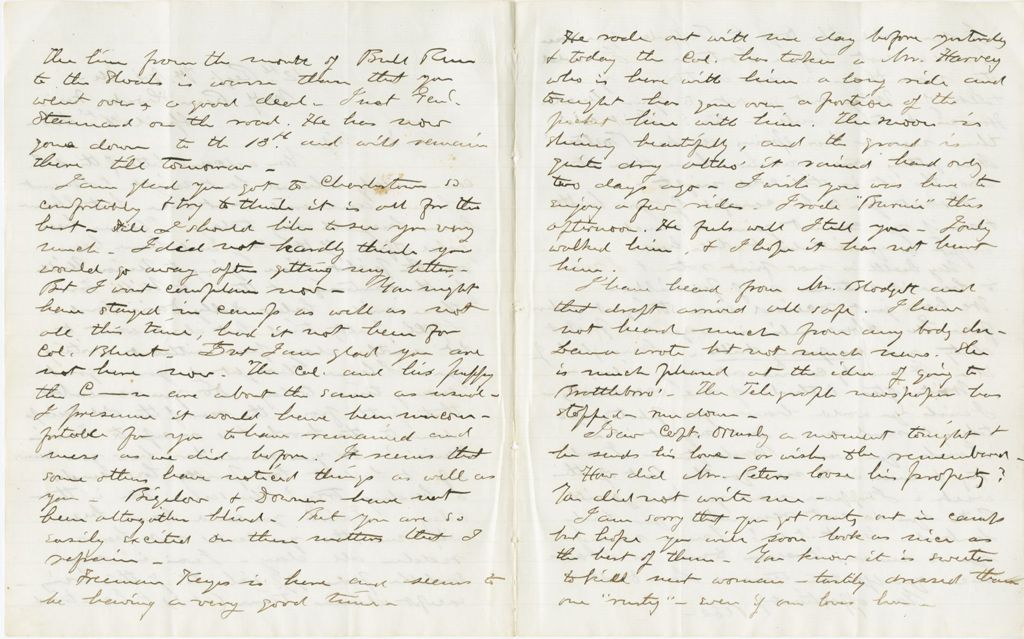 The line from the mouth of Bull Run
to the Shoals is worse than that you
went over & a good deal - Just Genl.
Stannard on the road. He has now
gone down to the 13th and will remain
there till tomorrow -
I am glad you got to Charlestown so
comfortably & try to think it is all for the
best - Still I should like to see you very
much. I did not hardly think you
would go away after getting my letter -
But I wont complain now - You might
have stayed in camp as well as not
all this time, had it not been for
Col. Blunt. But I am glad you are
not here now. The Col. and his puppy
the C—n are about the same as usual -
I presume it would have been uncom-
fortable for you to have remained and
mess as we did before. It seems that
some others have noticed things as well as
you - Bigelow & Downer have not
been altogether blind. But you are so
easily excited on these matters that I
refrain -
Freeman Keyes is here and seems to
be having a very good time -
He rode out with me day before yesterday
& today the Col. has taken a Mr. Harvey
who is here with him a long ride and
tonight has gone over a portion of the
picket line with him. The moon is
shining beautifully, and the ground is
quite dry altho' it rained hard only
two days ago - I wish you was here to
enjoy a few rides. I rode "Burnie" this
afternoon. He feels well I tell you - I only
walked him, & I hope it has not hurt
him.
I have heard from Mr. Blodgett and
that draft arrived all safe. I have
not heard much from any body else
wrote but not much news. She
is much pleased at the idea of going to
Brattleboro! - The Telegraph newspaper has
stopped - run down -
I saw Capt. Ormsby a moment tonight &
he sends his love - or wishes to be remembered -
How did Mr. Peters loose his property?
You did not write me -
I am sorry that you got rusty out in camp
but hope you will soon look as nice as
the best of them - You know it is sweeter
to kill neat woman - tastily dressed than
one "rusty" - even if one loves her -